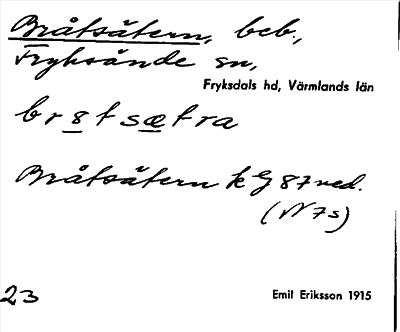 Bråtsätern, beb.,
Fryksände sn,
Fryksdals hd, Värmlands län
br8tsætra
Bråtsätern k eg 87 ned.
(N 7s)
23
Emil Eriksson 1915